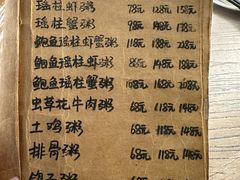 瑶柱虾粥 78元 128元 158元
瑶柱蟹粥 98元 148元 188元
鲍鱼瑶柱虾蟹粥 118元 178元 218元
鲍鱼瑶柱虾粥 88元 148元 188元
鲍鱼瑶柱蟹粥 108元 168元 208元
虫草花牛肉粥 68元 118元 148元
土鸡粥 68元 118元 148元
排骨粥 68元 118元 148元
鸽子粥 68元 148元